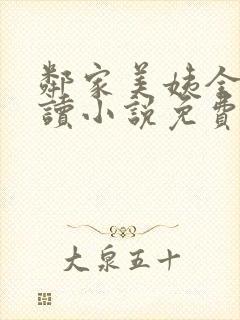 鄰家美姨全
讀小說免費
大泉五十